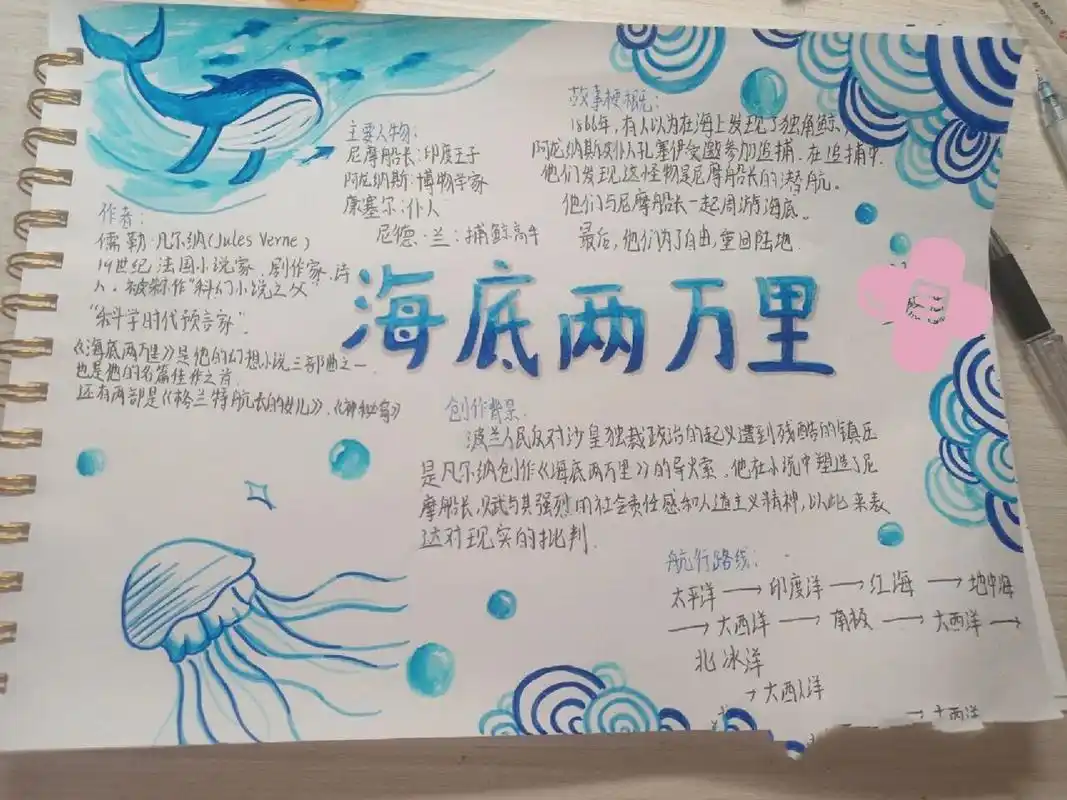 海底两万里
主要人物：
尼摩船长：印度王子
阿龙纳斯：博物学家
康塞尔：仆人
尼德·兰：捕鲸高手
故事梗概：
1866年，有人以为在海上发现了独角鲸，
阿龙纳斯及仆人孔塞伊受邀参加追捕，在追捕中，
他们发现这怪物是尼摩船长的潜航。
他们与尼摩船长一起周游海底。
最后，他们为了自由，重回陆地.
作者：
儒勒·凡尔纳（Jules Verne）
19世纪法国小说家、剧作家、诗
人。被称作“科幻小说之父”
“科学时代预言家”.
《海底两万里》是他的幻想小说三部曲之一.
也是他的名篇佳作之首.
还有两部是《格兰特船长的女儿》、《神秘岛》
创作背景.
波兰人民反对沙皇独裁政治的起义遭到残酷的镇压
是凡尔纳创作《海底两万里》的导火索。他在小说中塑造了尼
摩船长，赋与其强烈的社会责任感和人道主义精神，以此来表
达对现实的批判.
航行路线：
太平洋→印度洋→红海→地中海
→大西洋→南极→大西洋→
北冰洋
→大西洋
→大西洋